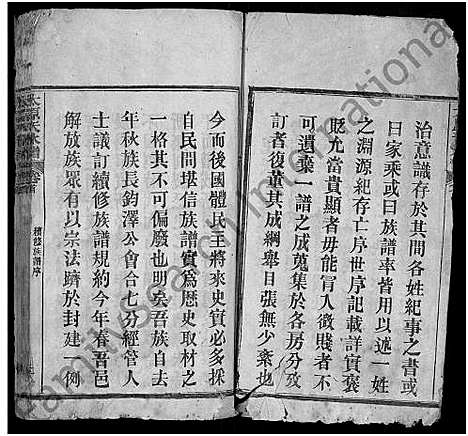 治意識存於其間各姓紀事之書或
曰家乘或曰族譜率皆用以述一姓
之淵源紀存亡序世序記載詳實褒
貶允當貴顯者毋能冒入微賤者不
可遺棄一譜之成蒐集於各房分攷
訂者復董其成綱舉目張無少紊也
今而後國體民主將來史實必多採
自民間堪信族譜實為歷史取材之
一格其不可偏廢也明矣吾族自去
年秋族長鈞澤公會合七分經管人
士議訂續修族譜規約今年春吾邑
解放族眾有以宗法躋於封建一例
續修族譜序
FamilySearch International